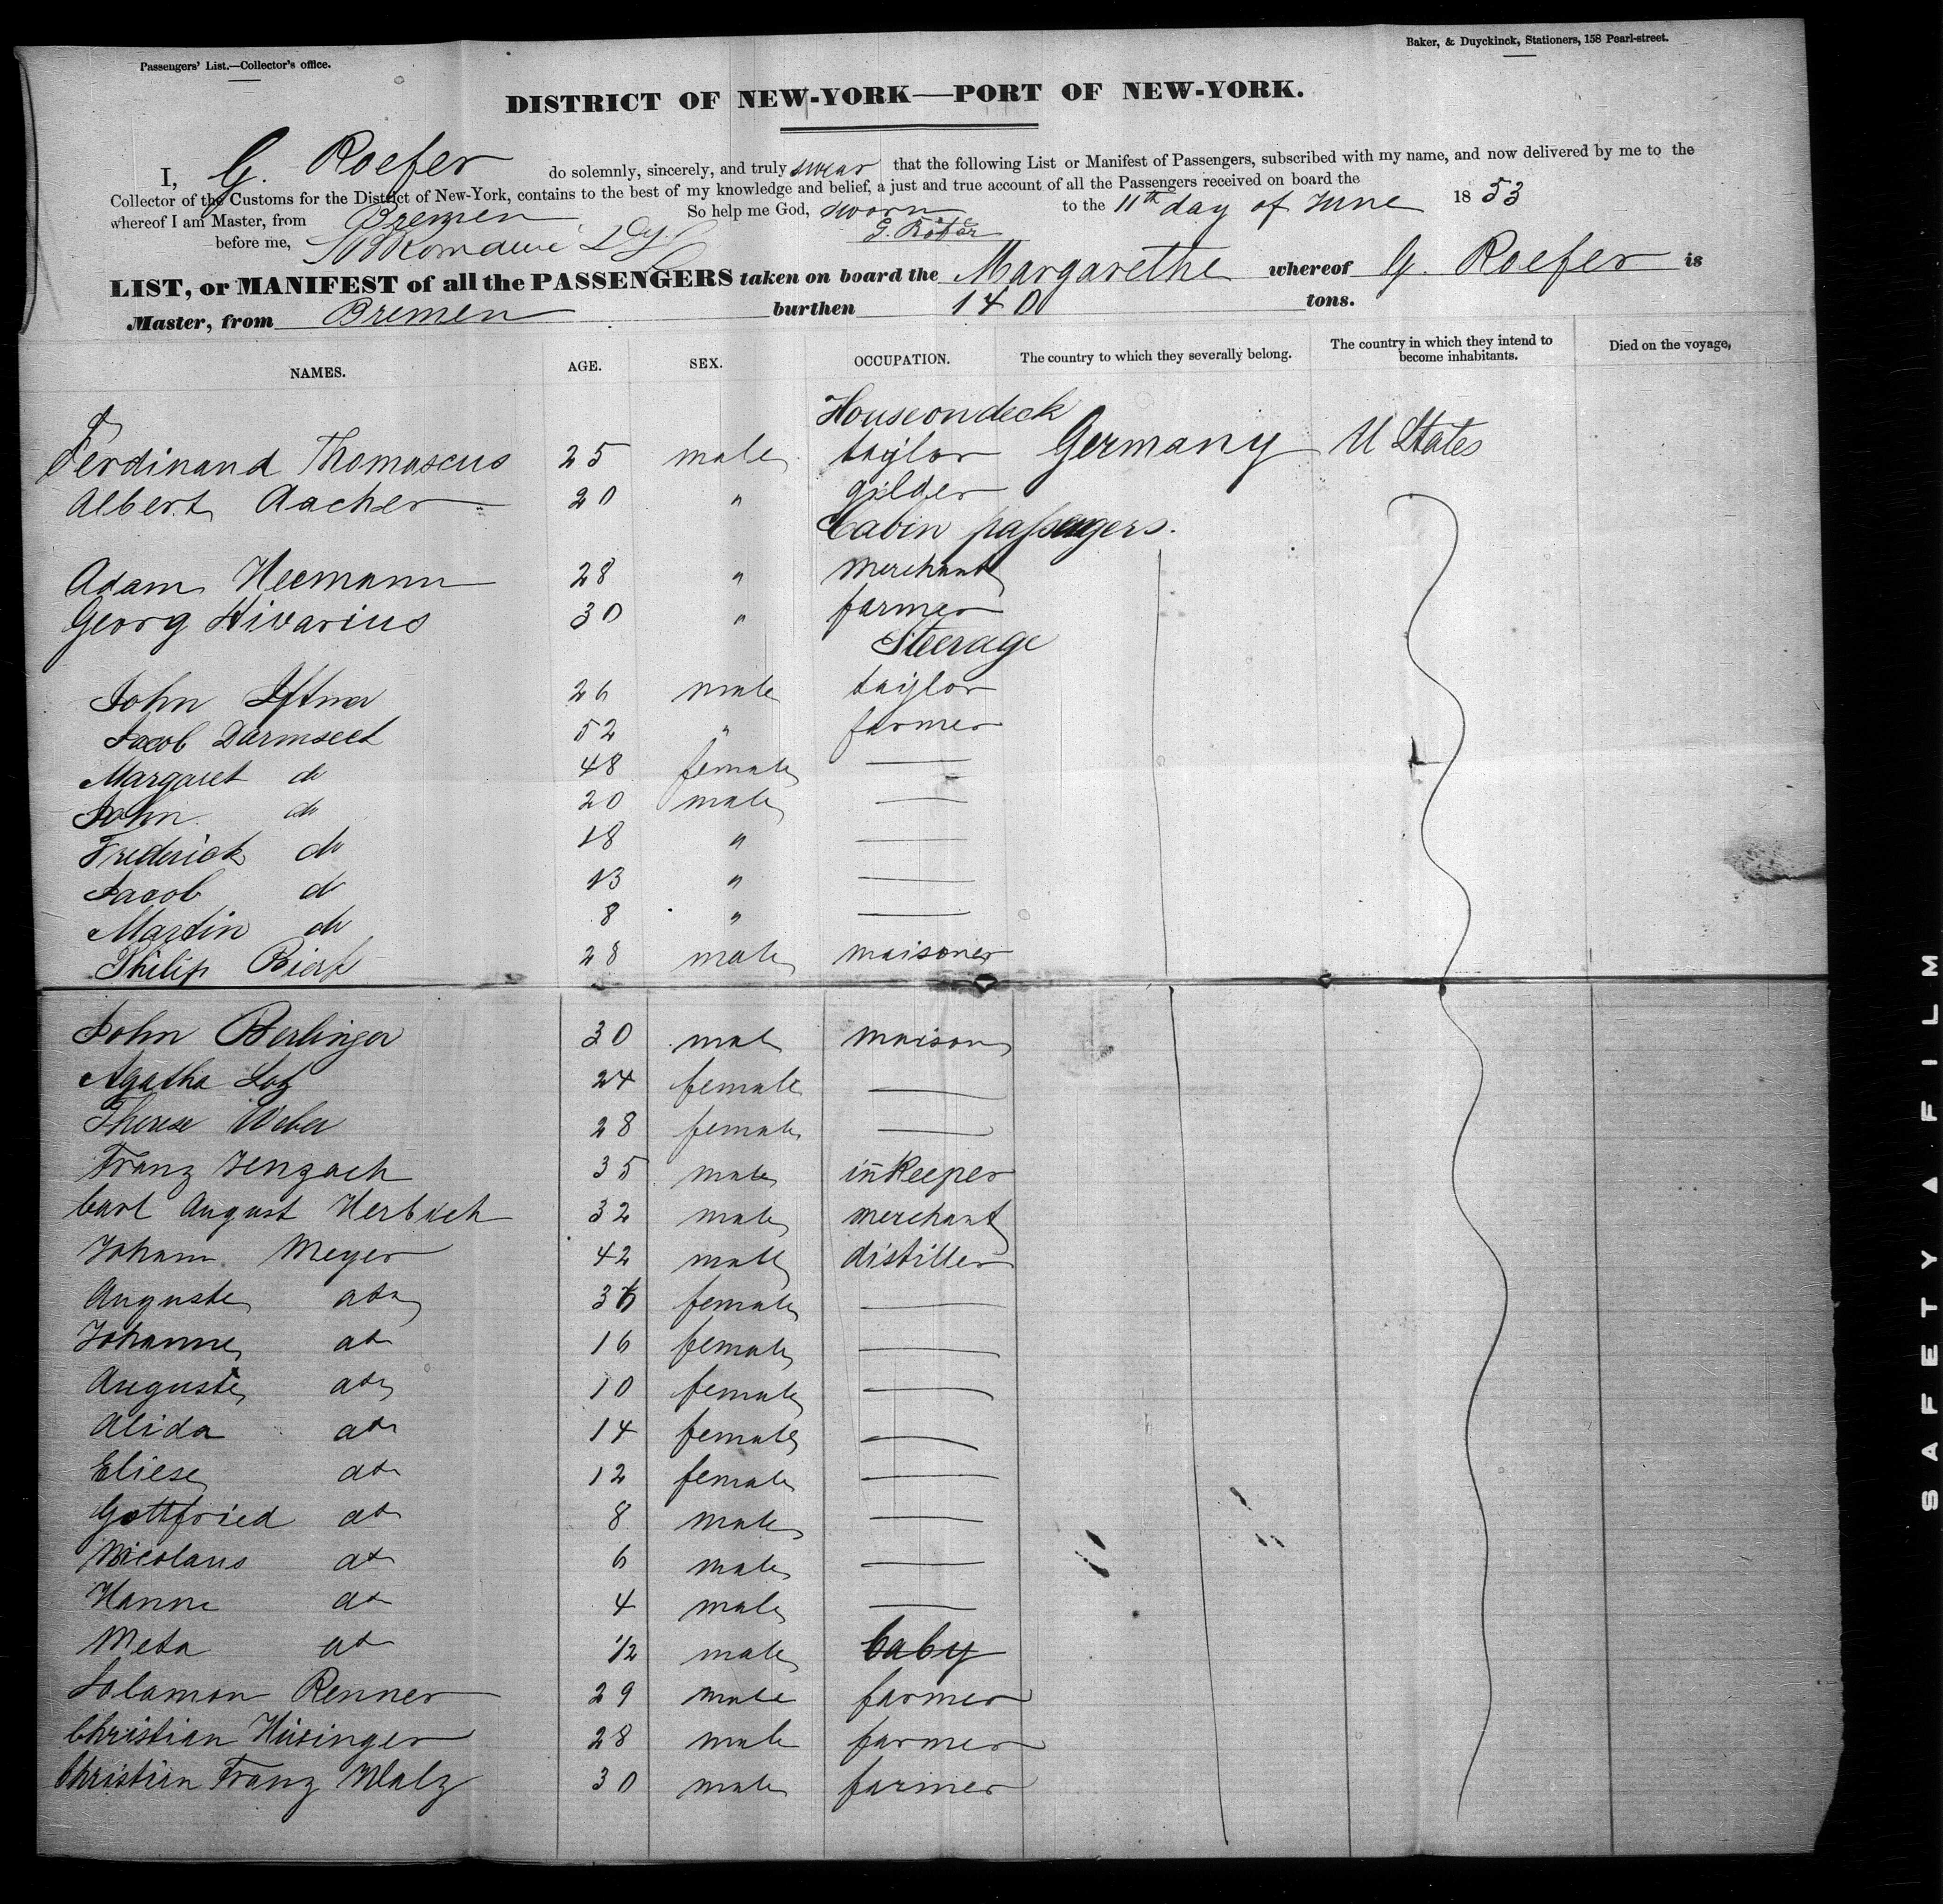 Baker, & Duyckinck, Stationers, 158 Pearl-street.
Passengers' List.—Collector's office.
DISTRICT OF NEW-YORK—PORT OF NEW-YORK.
I, G. Roefer do solemnly, sincerely, and truly swear that the following List or Manifest of Passengers, subscribed with my name, and now delivered by me to the
Collector of the Customs for the District of New-York, contains to the best of my knowledge and belief, a just and true account of all the Passengers received on board the
whereof I am Master, from Bremen So help me God, sworn to the 11th day of June 1853
before me,
LIST, or MANIFEST of all the PASSENGERS taken on board the Margarethe whereof G. Roefer is
Master, from Bremen burthen 140 tons.
NAMES. AGE. SEX. OCCUPATION. The country to which they severally belong. The country in which they intend to become inhabitants. Died on the voyage,
House on deck
Ferdinand Thomascus 25 male taylor Germany U States
Albert Aacher 20 " gilder
Cabin passengers.
Adam Heemann 28 " merchant
Georg Hivarius 30 " farmer
Steerage
John 26 male taylor
Jacob Darmseet 52 " farmer
Margaret do 48 female —
John do 20 male —
Frederick do 18 " —
Jacob do 13 " —
Martin do 8 " —
Philip 28 male maisoner
John Berlinger 30 male maison
Agatha Lotz 24 female —
Therese Weber 28 female —
Franz Jenzach 35 male inkeeper
Carl August 32 male merchant
Johann Meyer 42 male distiller
Auguste 36 female —
Johanne 16 female —
Auguste 10 female —
Alida 14 female —
Eliese 12 female —
Gottfried 8 male —
Nicolaus 6 male —
Hanne 4 male —
Meta 1/2 male baby
Solamon Renner 29 male farmer
Christian Hüsinger 28 male farmer
Christian Franz Walz 30 male farmer
SAFETY ▲ FILM